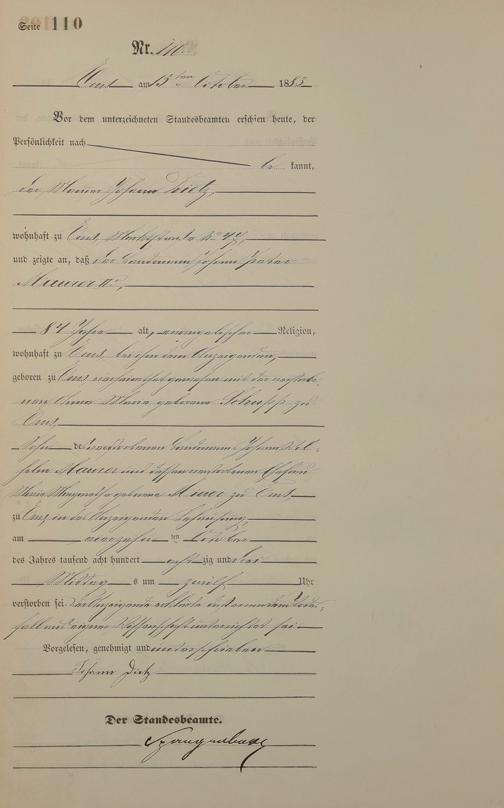 Seite 110
Nr. 110.
Ems am 15ten October 1883
Vor dem unterzeichneten Standesbeamten erschien heute, der
Persönlichkeit nach
be kannt,
der Maurer Johann Dietz,
wohnhaft zu Ems, Marktstraße No 47,
und zeigte an, daß der Landmann Johann Peter
Maurer IIr,
84 Jahre alt, evangelischer Religion,
wohnhaft zu Ems, bei ihm dem Anzeigenden,
geboren zu Ems verheirathet gewesen mit der verstorbe-
nen Anna Maria geborene Schupp zu
Ems,
Sohn des verstorbenen Landmanns Johann Wil-
helm Maurer und dessen verstorbenen Ehefrau
Maria geborene zu Ems,
zu Ems in des Anzeigenden Behausung,
am vierzehnten October
des Jahres tausend acht hundert achtzig und drei
Mittags um zwölf Uhr
verstorben sei. Der Anzeigende erklärte daß er von dem Sterbe-
fall aus eigener Wissenschaft unterrichtet sei.
Vorgelesen, genehmigt und unterschrieben
Johann Dietz
Der Standesbeamte.
Spangenberg